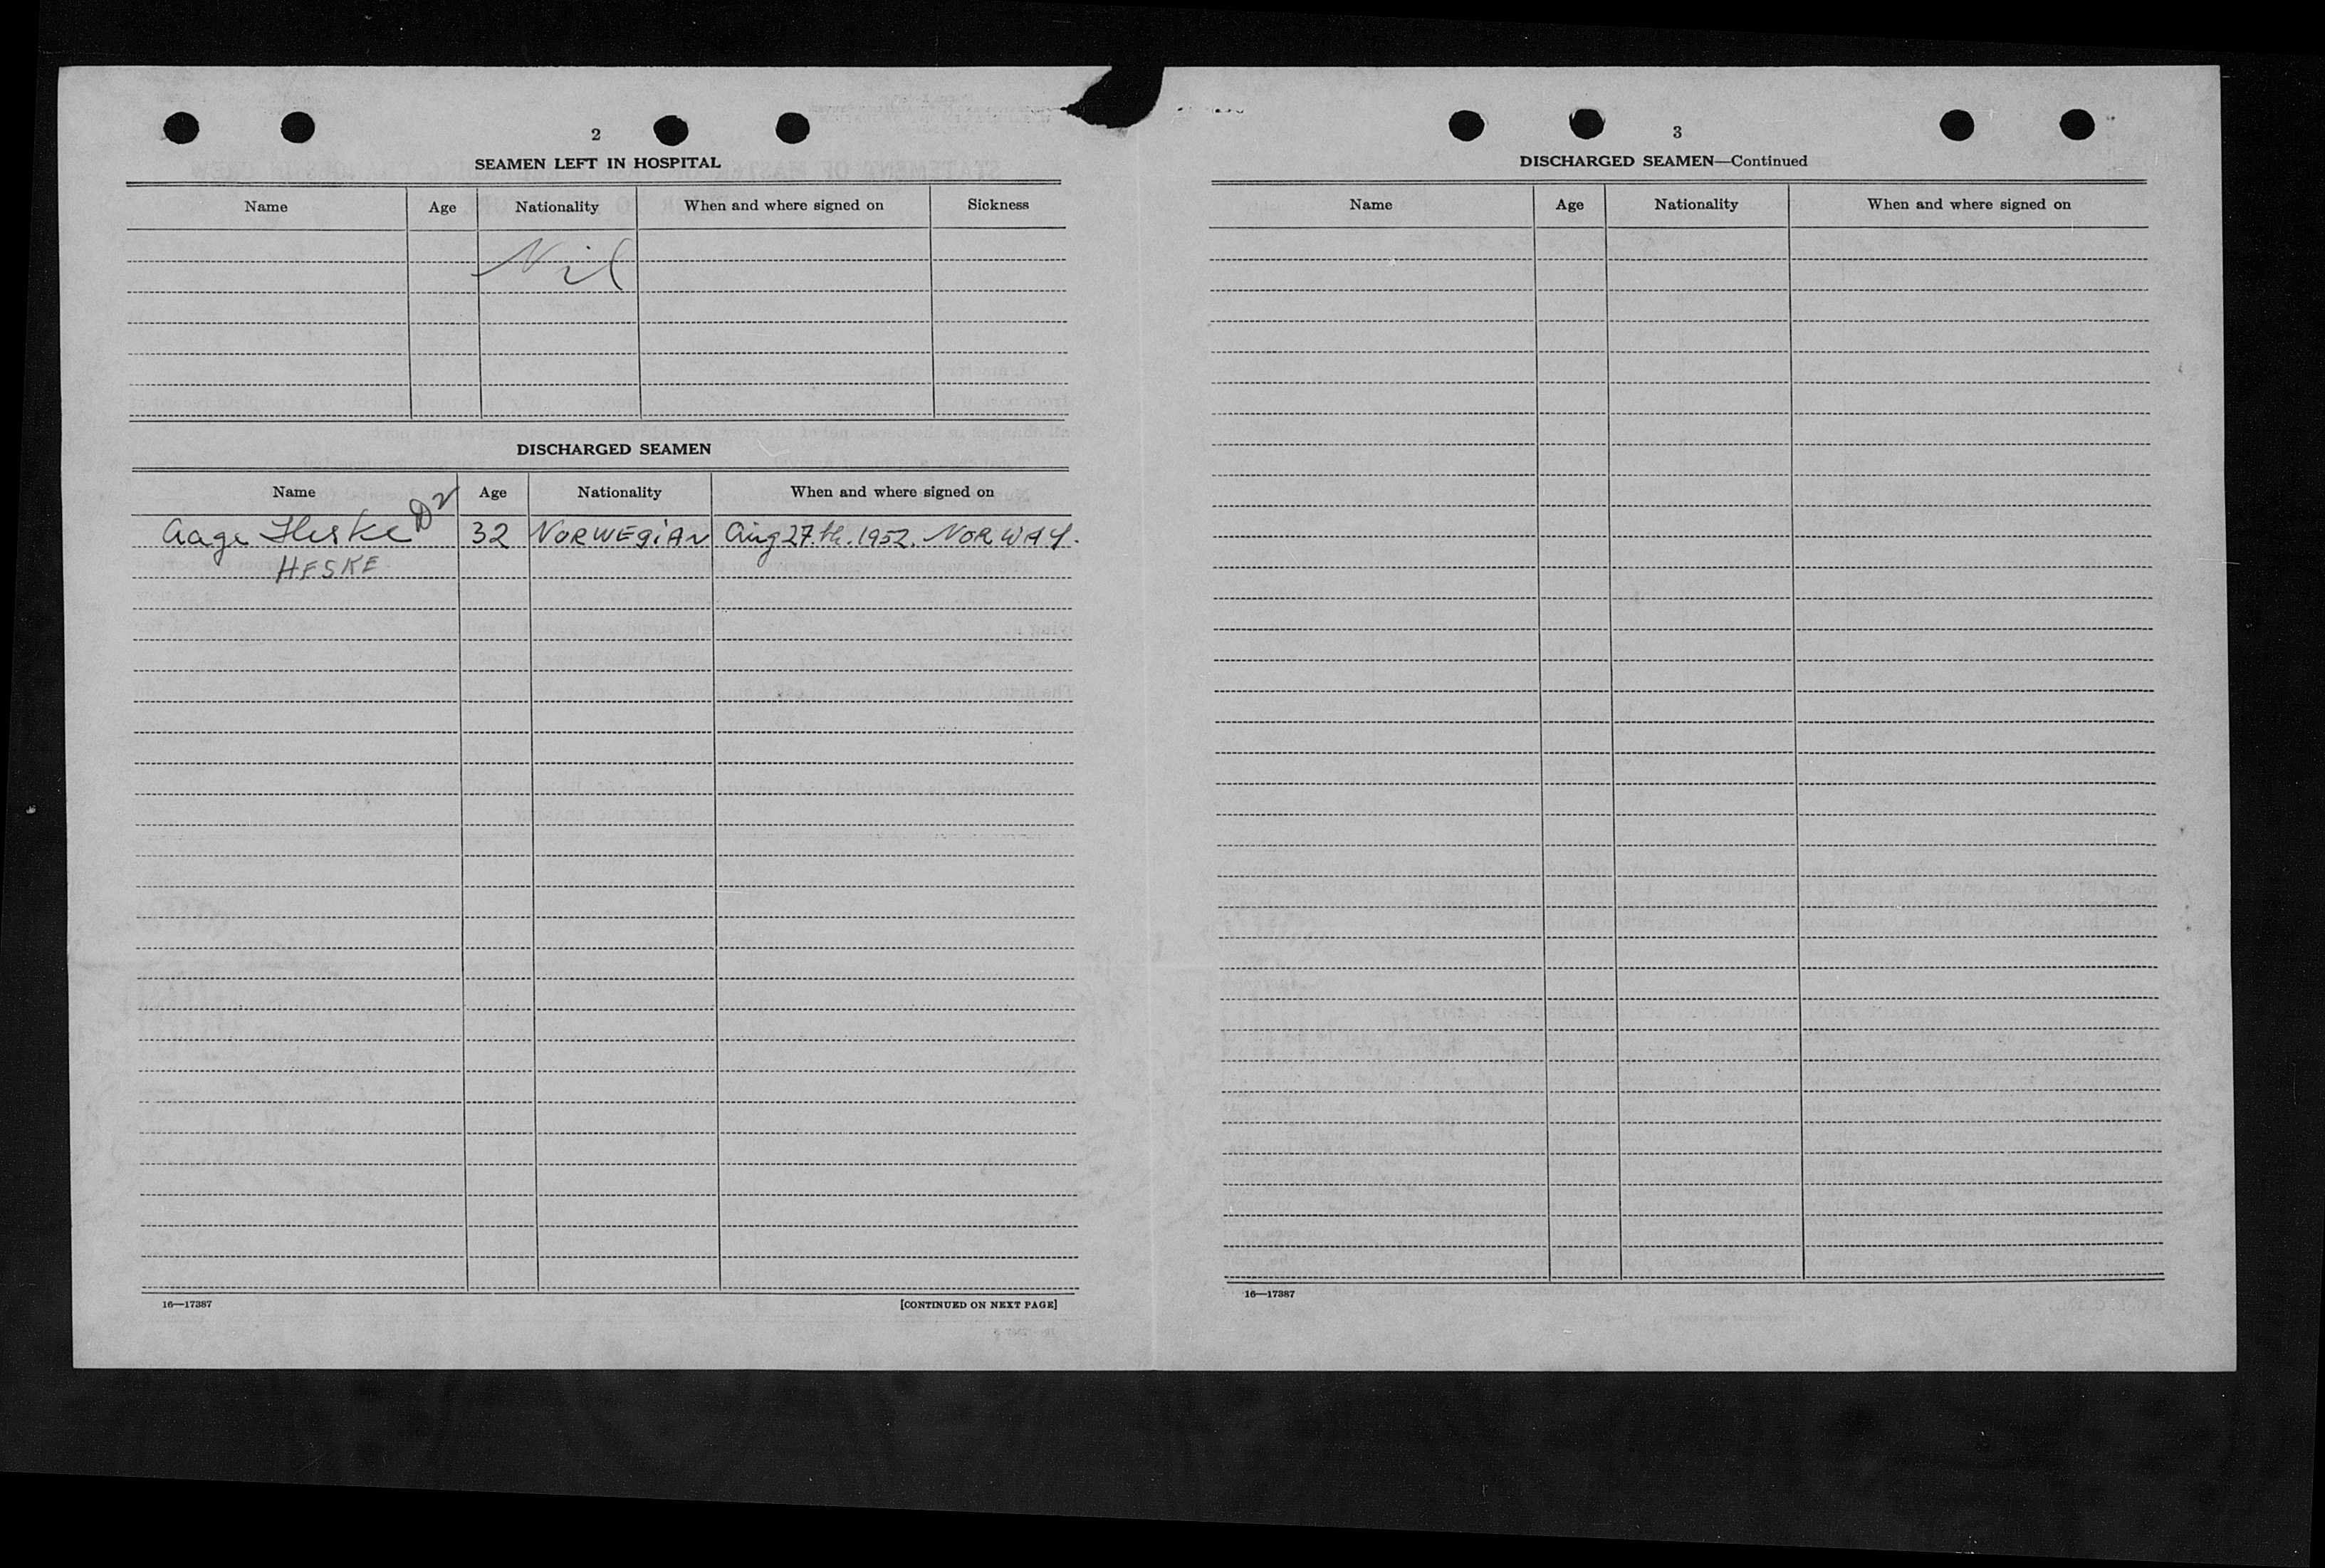 2
SEAMEN LEFT IN HOSPITAL
Name Age Nationality When and where signed on Sickness
Nil
DISCHARGED SEAMEN
Name Age Nationality When and where signed on
Aage Heske 32 NORWEGIAN Aug 27.th. 1952. NORWAY.
HESKE
16—17387 [CONTINUED ON NEXT PAGE]
3
DISCHARGED SEAMEN—Continued
Name Age Nationality When and where signed on
16—17387